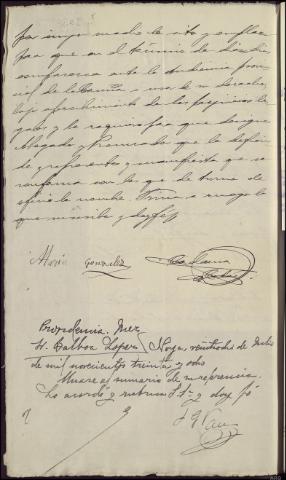 por cuyo medio le cito y emplazo
para que en el término de diez dias
comparezca ante la Audiencia provin
cial de la Coruña a usar de su derecho
bajo apercibimiento de los perjuicios le
gales y le requiero para que designe
Abogado y Procurador que le defien
da y represente y manifiesta que se
conforma con los que de turno de
oficio le nombre. Firma a ruego lo
que suscribe y doy fé
María Gonzalez
Providencia Juez
Sr. Balboa Lopez / Noya, veintiocho de Julio
de mil novecientos treinta y ocho
Unase al sumario de su referencia.
Lo acordó y rubrica S.Sª y doy fé